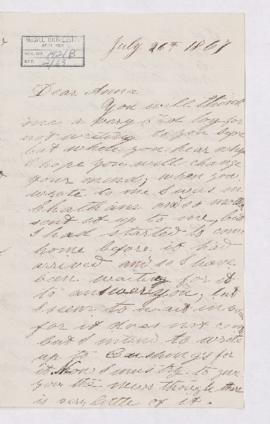 July 26th 1867
Dear Anna
You will think
me a very bad boy for
not writing to you before
but when you hear why
I hope you will change
your mind, when you
wrote to me I was in
Chatham and so
send it up to me, but
I had started to come
home before it had
arrived and so I have
been waiting for it
to answer you, but
I seem to wait in
for it does not com
but I intend to write
up to for
it now I must try to
you the news though there
is very little of it.